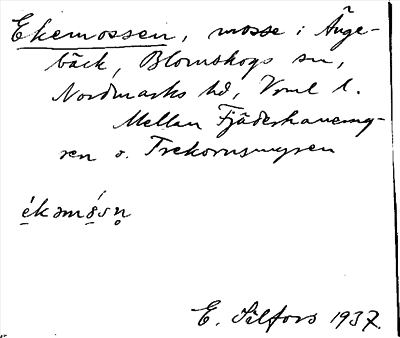 Ekemossen, mosse i Änge-
bäck, Blomskogs sn,
Nordmarks hd, Vrml l.
Mellan Fjäderhanemy-
ren o. Trekornsmyren
ékəmòsn̥
E. Sälfors 1937.